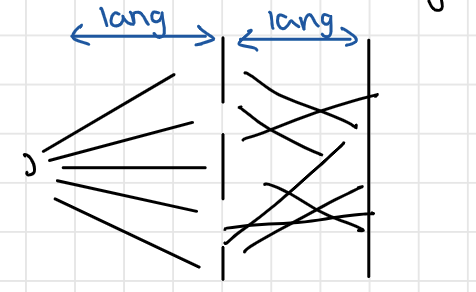 lang lang